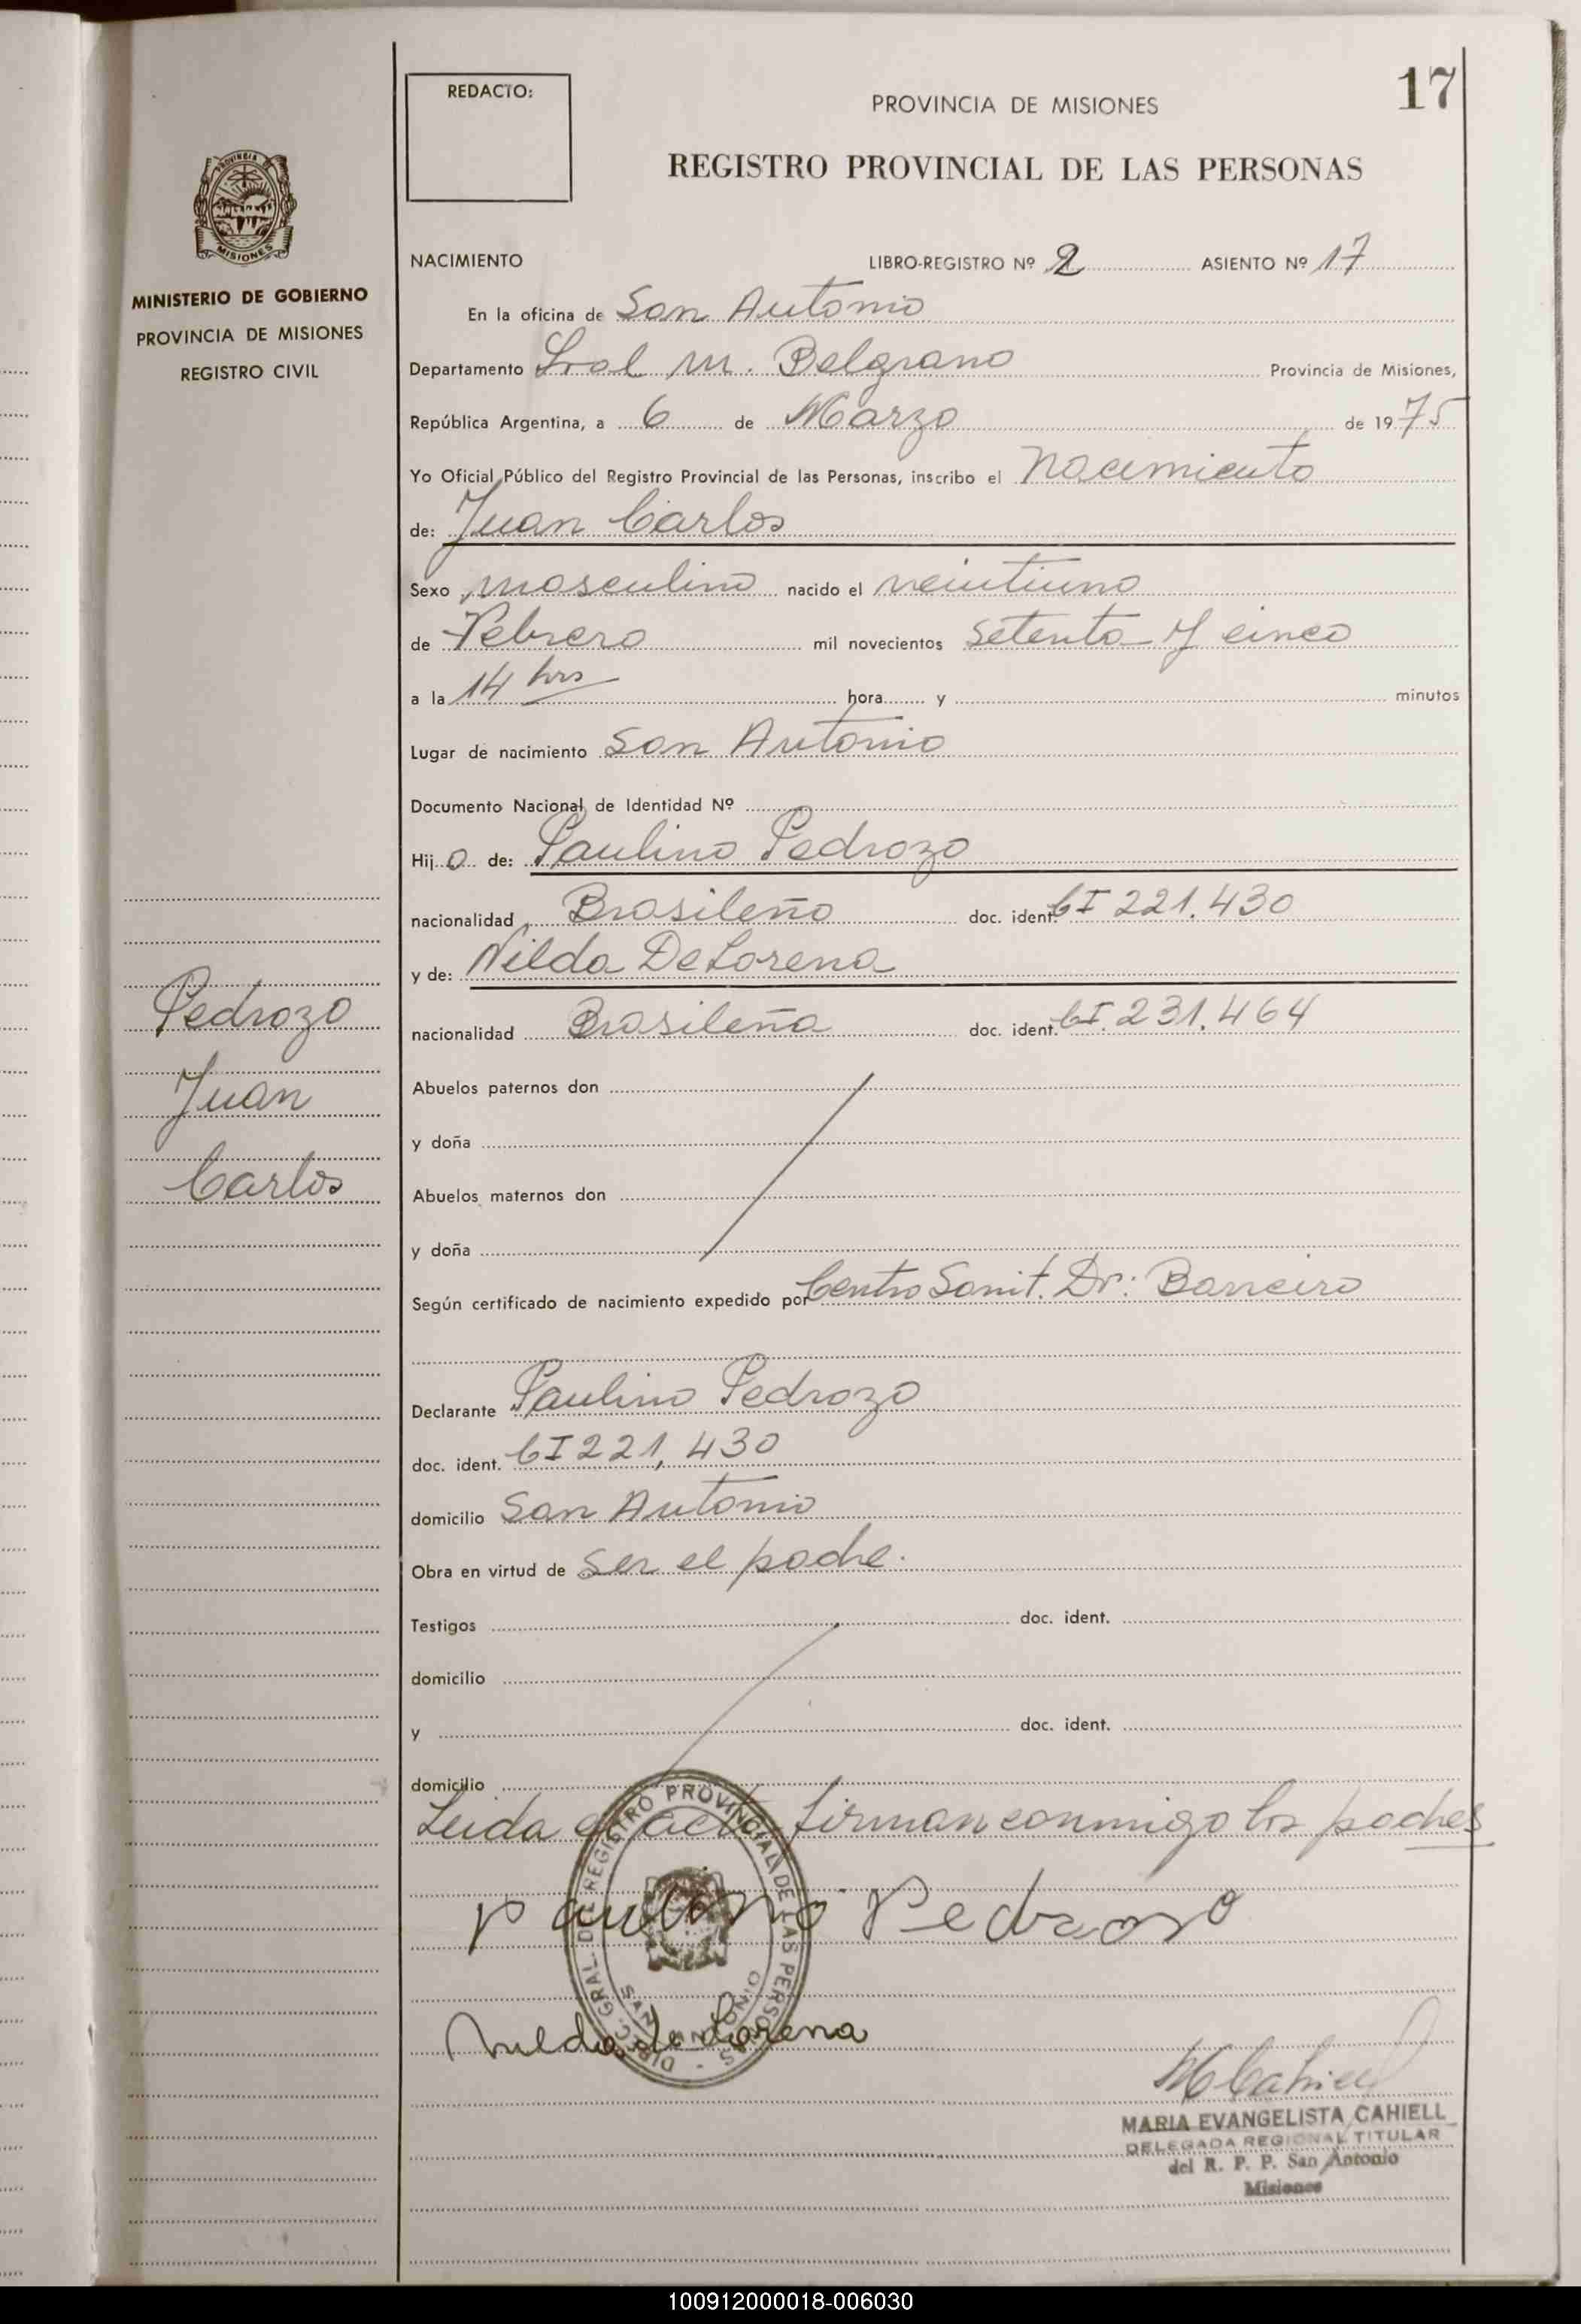 REDACTO:
PROVINCIA DE MISIONES
17
REGISTRO PROVINCIAL DE LAS PERSONAS
PROVINCIA DE
MISIONES
MINISTERIO DE GOBIERNO
PROVINCIA DE MISIONES
REGISTRO CIVIL
NACIMIENTO LIBRO-REGISTRO Nº 2 ASIENTO Nº 17
En la oficina de San Antonio
Departamento Gral M. Belgrano Provincia de Misiones,
República Argentina, a 6 de Marzo de 1975
Yo Oficial Público del Registro Provincial de las Personas, inscribo el nacimiento
de: Juan Carlos
Sexo masculino nacido el veintiuno
de Febrero mil novecientos setenta y cinco
a la 14 hrs hora y minutos
Lugar de nacimiento San Antonio
Documento Nacional de Identidad Nº
Hij o de: Paulino Pedrozo
nacionalidad Brasileño doc. ident. CI 221.430
y de: Nilda De Lorena
nacionalidad Brasileña doc. ident. CI. 231.464
Abuelos paternos don
y doña
Abuelos maternos don
y doña
Según certificado de nacimiento expedido por Centro Sanit. Dr: Barreiro
Declarante Paulino Pedrozo
doc. ident. CI 221,430
domicilio San Antonio
Obra en virtud de ser el padre.
Testigos doc. ident.
domicilio
y doc. ident.
domicilio
Leida el acta firman conmigo los padres
Paulino Pedrozo
Nilda de Lorena
DIREC. GRAL. DEL REGISTRO PROVINCIAL DE LAS PERSONAS
SAN ANTONIO
M Cahiell
MARIA EVANGELISTA CAHIELL
DELEGADA REGIONAL TITULAR
del R. P. P. San Antonio
Misiones
Pedrozo
Juan
Carlos
100912000018-006030